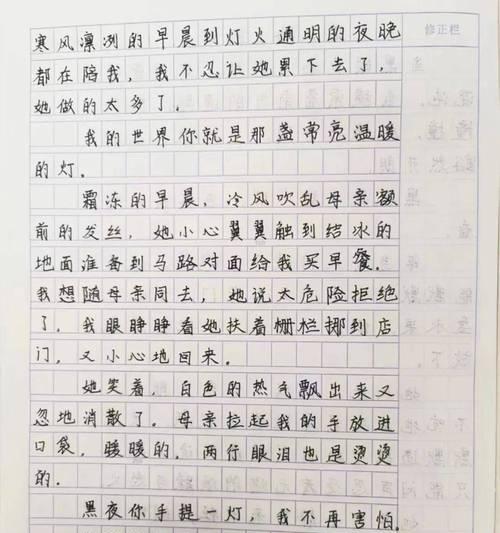 修正栏
寒风凛冽的早晨到灯火通明的夜晚
都在陪我，我不忍让她累下去了，
她做的太多了。
我的世界你就是那盏常亮温暖
的灯。
霜冻的早晨，冷风吹乱母亲额
前的发丝，她小心翼翼触到结冰的
地面准备到马路对面给我买早餐。
我想随母亲同去，她说太危险拒绝
了。我眼睁睁看她扶着栅栏挪到店
门，又小心地回来。
她笑着，白色的热气飘出来又
忽地消散了。母亲拉起我的手放进
口袋，暖暖的。两行眼泪也是烫烫
的。
黑夜你手提一灯，我不再害怕。